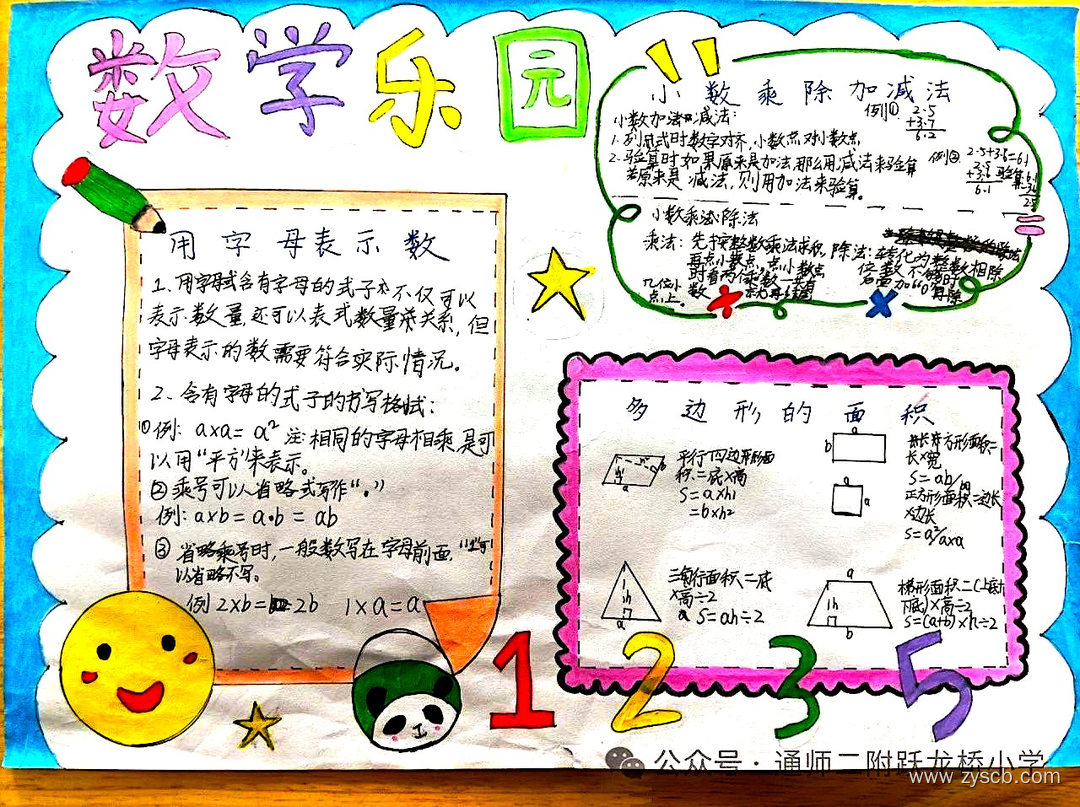 数学乐园
用字母表示数
1、用字母或含有字母的式子不仅可以
表示数量,还可以表式数量关系,但
字母表示的数需要符合实际情况。
2、含有字母的式子的书写格式:
①例: a×a= a² 注:相同的字母相乘是可
以用“平方”来表示。
②乘号可以省略或写作“·”
例: a×b=a·b=ab
③ 省略乘号时,一般数写在字母前面,“1”可
以省略不写。
例 2×b= 2b 1×a=a
小数乘除加减法
小数加法减法:
1.列竖式时数字对齐,小数点对小数点
2.验算时如果原来是加法那么用减法来验算
若原来是减法,则用加法来验算。
例① 2.5
+3.7
6.2
例② 2.5+3.6=6.1
2.5
+3.6
6.1
验算:6.1
小数乘法除法
乘法:先按整数乘法求积,
再点小数点,点小数点
时看两个乘数一共有
几位小数
点上。
除法:转化为整数相除
倍数不够时
右面加“0”再除
=
多边形的面积
平行四边形面
积=底×高
S=a×h
=b×h²
h
a
长方形面积=
长×宽
S=ab
b
a
正方形面积=边长
×边长
S=a²/a×a
a
a
三角行面积=底
×高÷2
S=ah÷2
h
a
梯形面积=(上底+
下底)×高÷2
S=(a+b)×h÷2
a
h
b
1 2 3 5
公众号·通师二附跃龙桥小学
www.zyscb.com